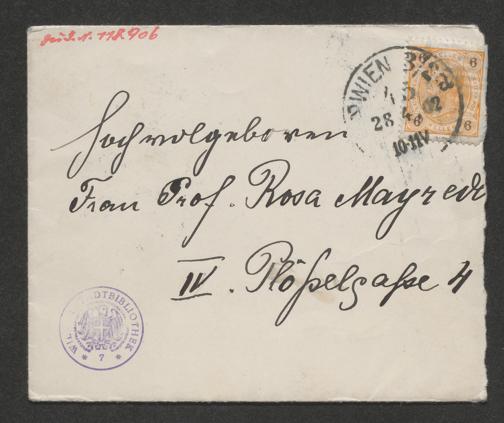 I.N. 118.906
WIEN
28 4 02
10-11V
6
6 6
Hochwolgeboren
Frau Prof. Rosa Mayreder
IV. Plößelgasse 4
WIENER STADTBIBLIOTHEK
* 7 *